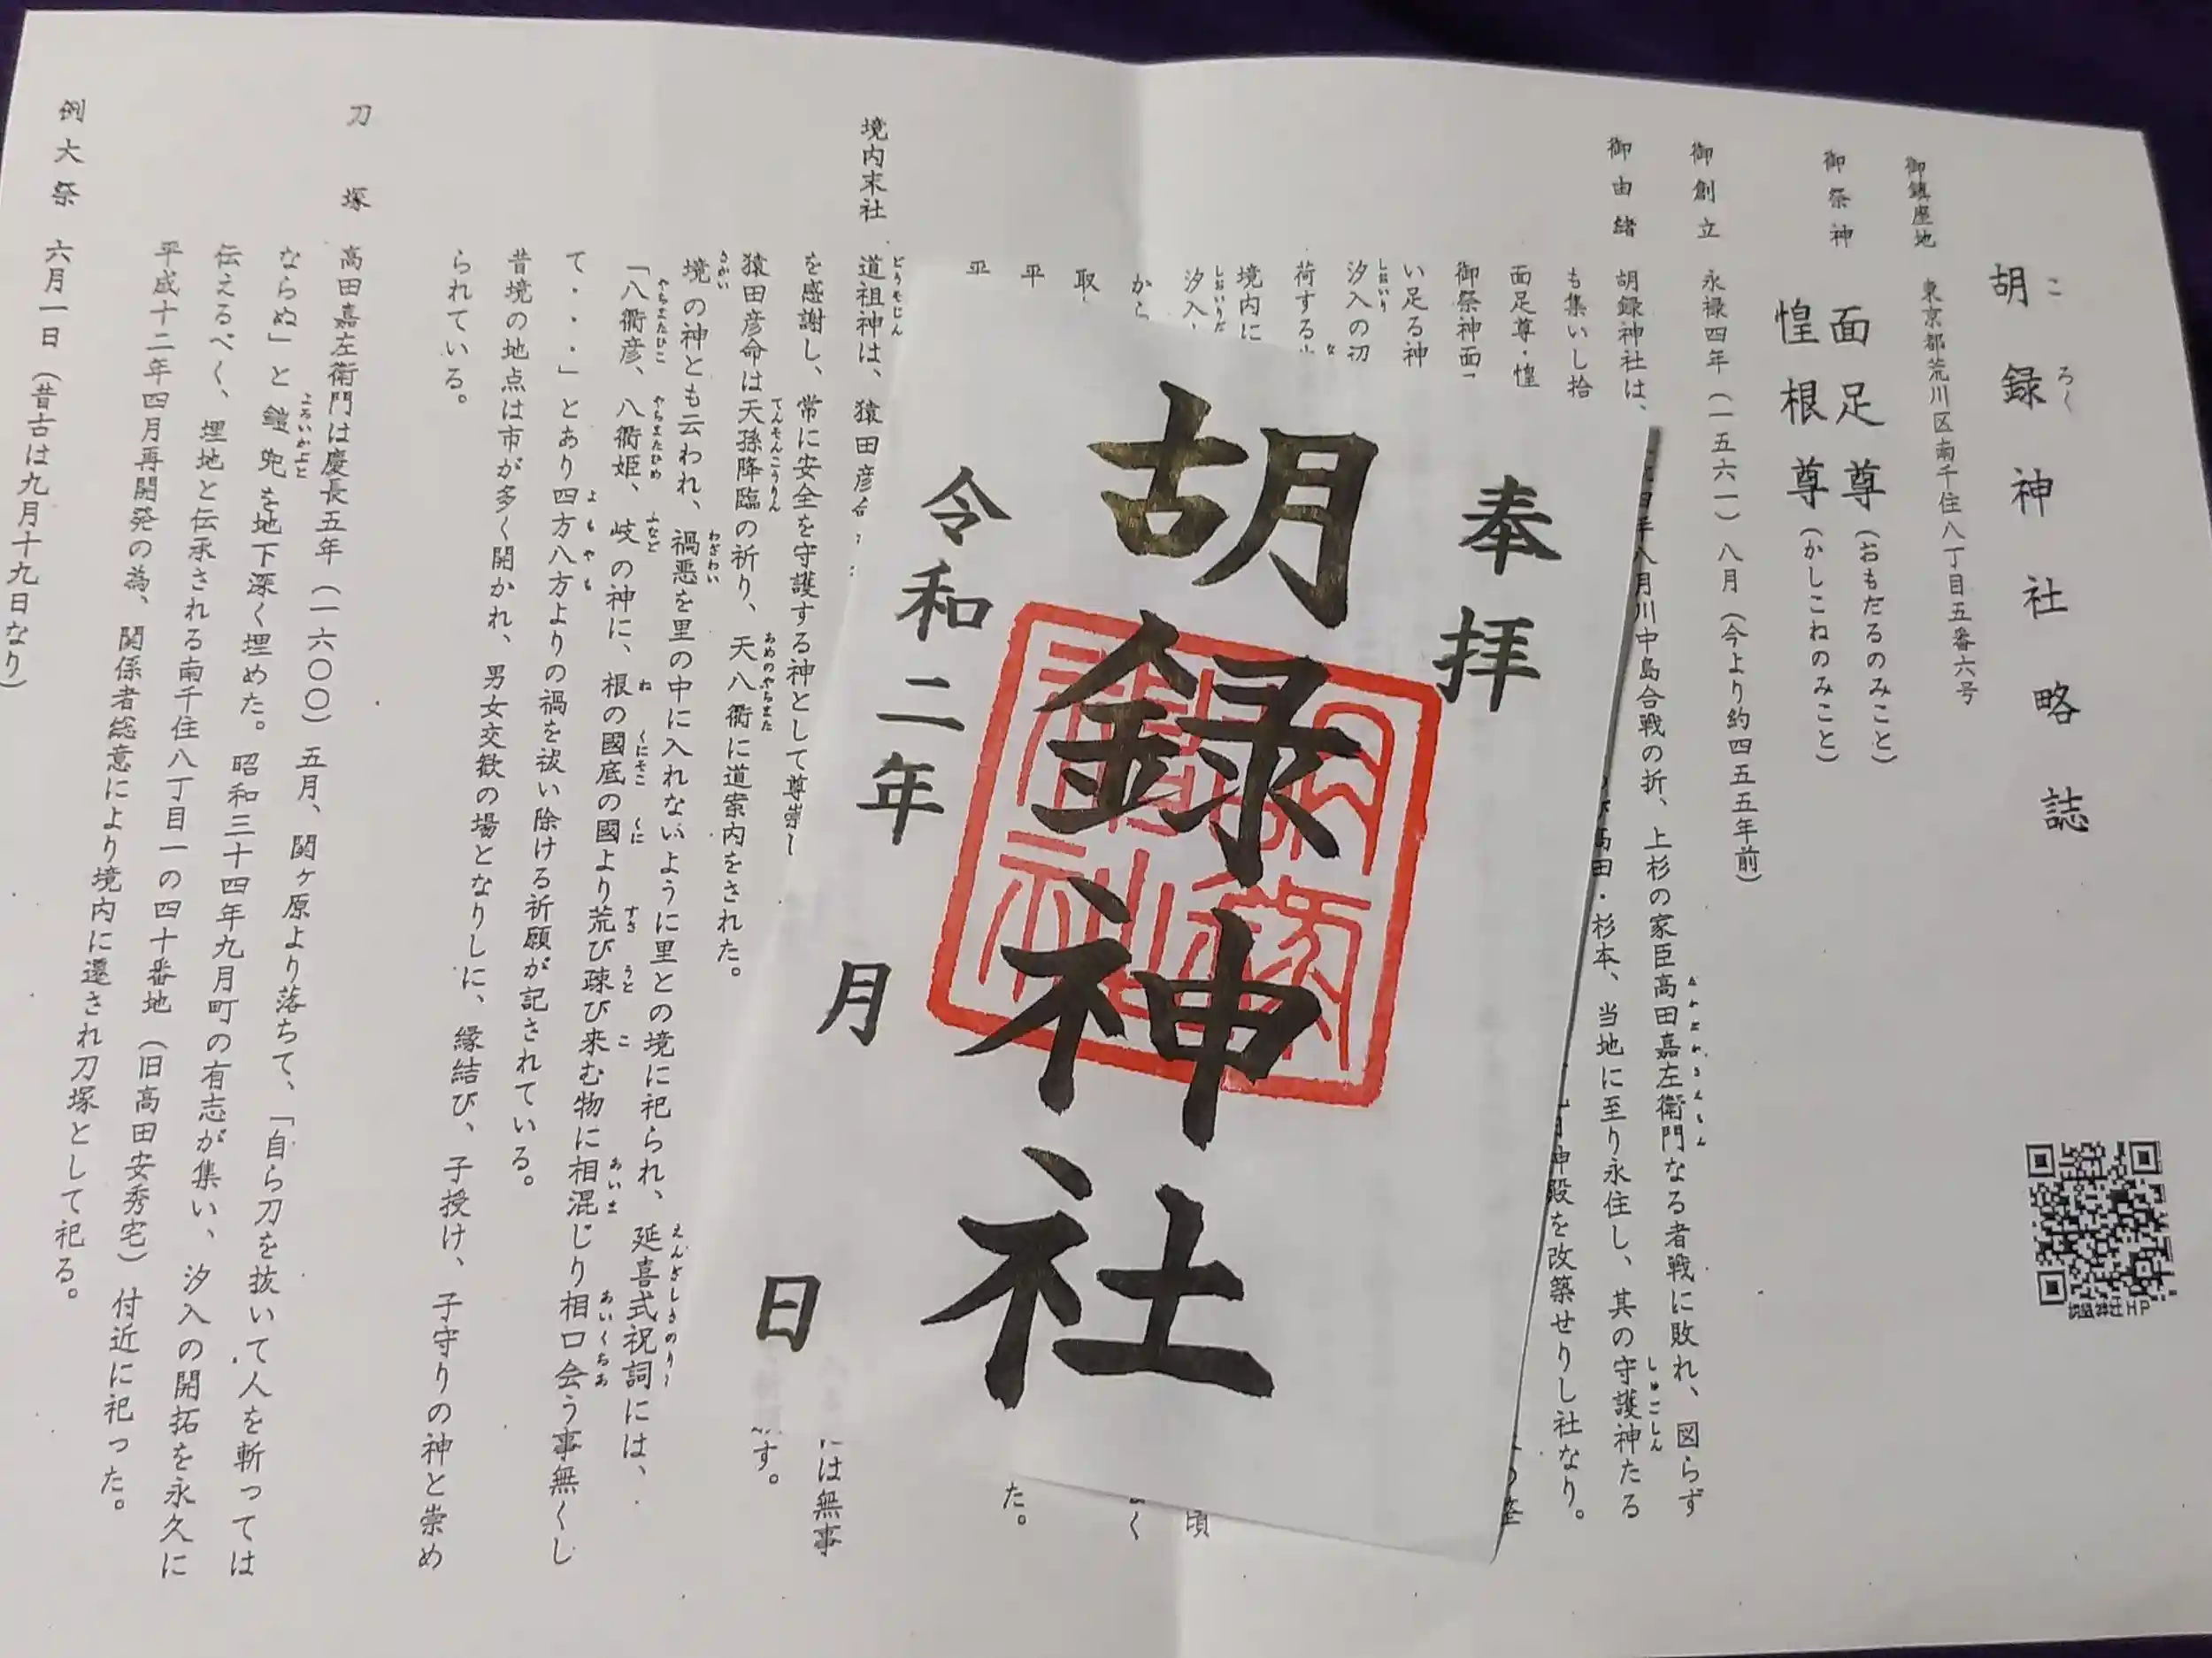 胡録神社略誌
ころく
御鎮座地 東京都荒川区南千住八丁目五番六号
御祭神 面足尊(おもだるのみこと)
惶根尊(かしこねのみこと)
御創立 永禄四年(一五六一)八月(今より約四五五年前)
御由緒 胡録神社は、
年八月川中島合戦の折、上杉の家臣高田嘉左衛門なる者戦に敗れ、図らず
も集いし拾
高田・杉本、当地に至り永住し、其の守護神たる
しゅごしん
面足尊・惶
神殿を改築せりし社なり。
御祭神面
い足る神
汐入の初
しおいり
荷する
境内に
汐入
頃
から
く
取
平
た。
平
境内末社 道祖神は、猿田彦
どうそじん
は無事
を感謝し、常に安全を守護する神として尊崇
す。
猿田彦命は天孫降臨の祈り、天八衢に道案内をされた。
てんそんこうりん
あめのやちまた
境の神とも云われ、禍悪を里の中に入れないように里との境に祀られ、延喜式祝詞には、
さかい
わざわい
「八衢彦、八衢姫、岐の神に、根の國底の國より荒び疎び来む物に相混じり相口会う事無くし
やちまたひこ
やちまたひめ
ふなど
ね
くにそこ
くに
すさ
うと
こ
あいま
あいくちあ
て・・・」とあり四方八方よりの禍を祓い除ける祈願が記されている。
よもやも
昔境の地点は市が多く開かれ、男女交歓の場となりしに、縁結び、子授け、子守りの神と崇め
られている。
刀塚 高田嘉左衛門は慶長五年(一六〇〇)五月、関ヶ原より落ちて、「自ら刀を抜いて人を斬っては
ならぬ」と鎧兜を地下深く埋めた。昭和三十四年九月町の有志が集い、汐入の開拓を永久に
よろいかぶと
伝えるべく、埋地と伝承される南千住八丁目一の四十番地(旧高田安秀宅)付近に祀った。
平成十二年四月再開発の為、関係者総意により境内に遷され刀塚として祀る。
例大祭 六月一日(昔古は九月十九日なり)
胡録神社HP
奉拝
胡録神社
令和二年 月 日